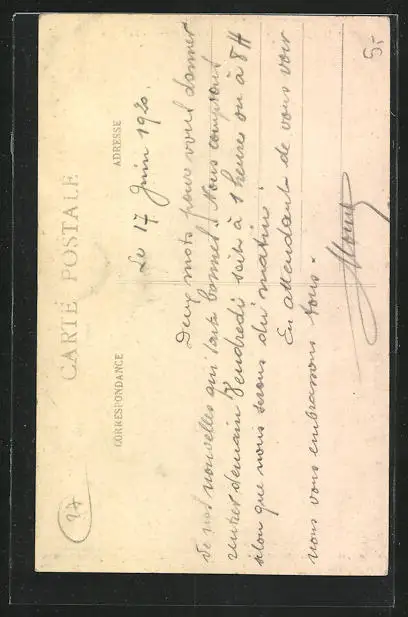 CARTE POSTALE
CORRESPONDANCE
ADRESSE
Le 17 Juin 1920.
Deux mots pour vous donner
de nos nouvelles qui sont bonnes. Nous comptons
rentrer demain Vendredi soit à 1 heures ou à 8H
selon que nous serons du matin.
En attendant de vous voir
nous vous embrassons tous.
27
5.-